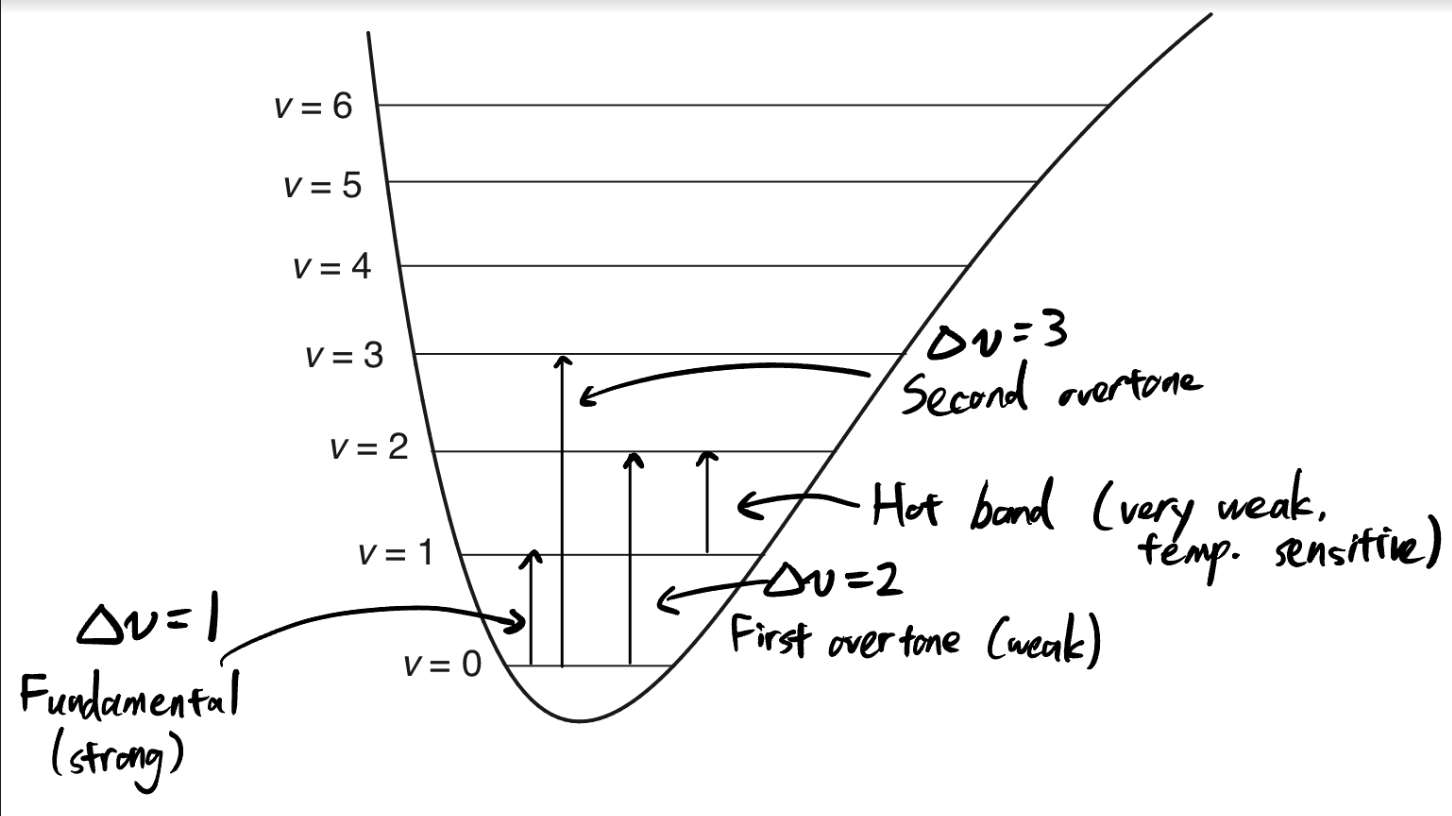 v = 6
v = 5
v = 4
v = 3
Δv=3
Second overtone
v = 2
Hot band (very weak,
temp. sensitive)
v = 1
Δv=2
First overtone (weak)
Δv=1
v = 0
Fundamental
(strong)